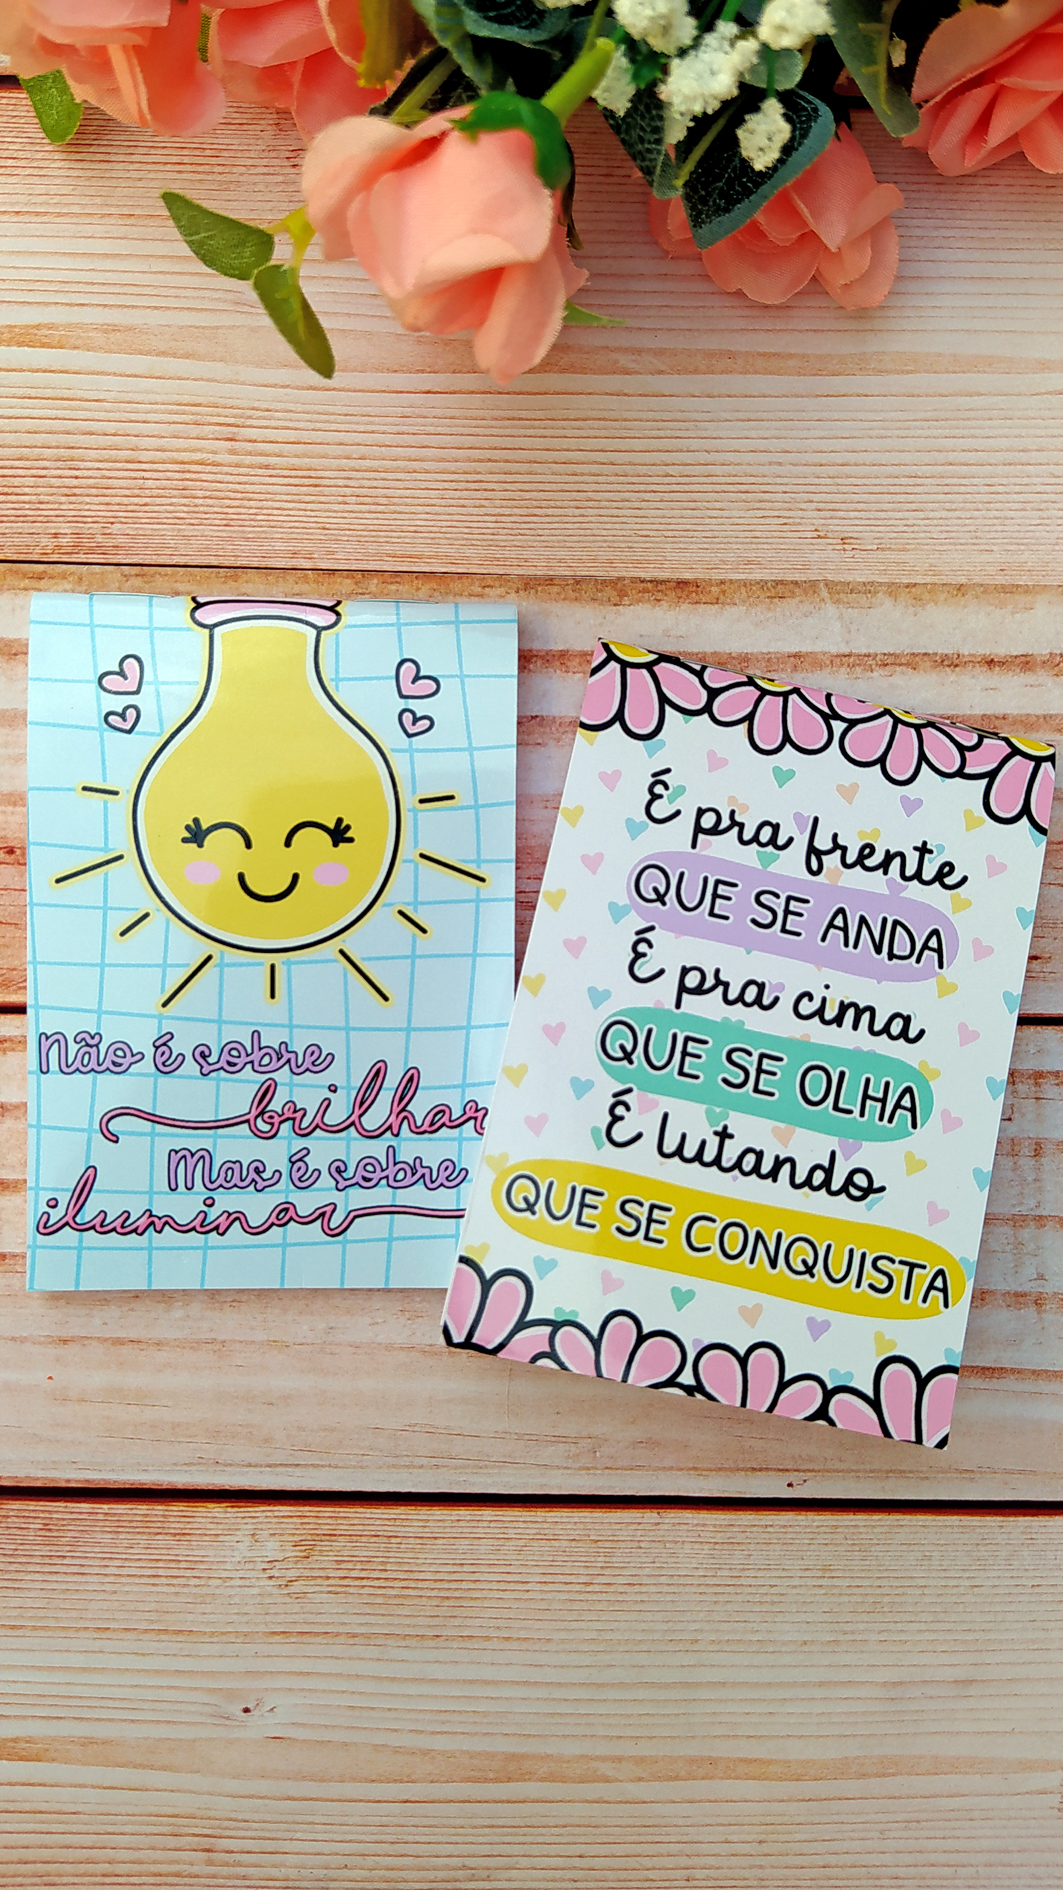 Não é sobre
brilhar
Mas é sobre
iluminar
É pra frente
QUE SE ANDA
É pra cima
QUE SE OLHA
É lutando
QUE SE CONQUISTA